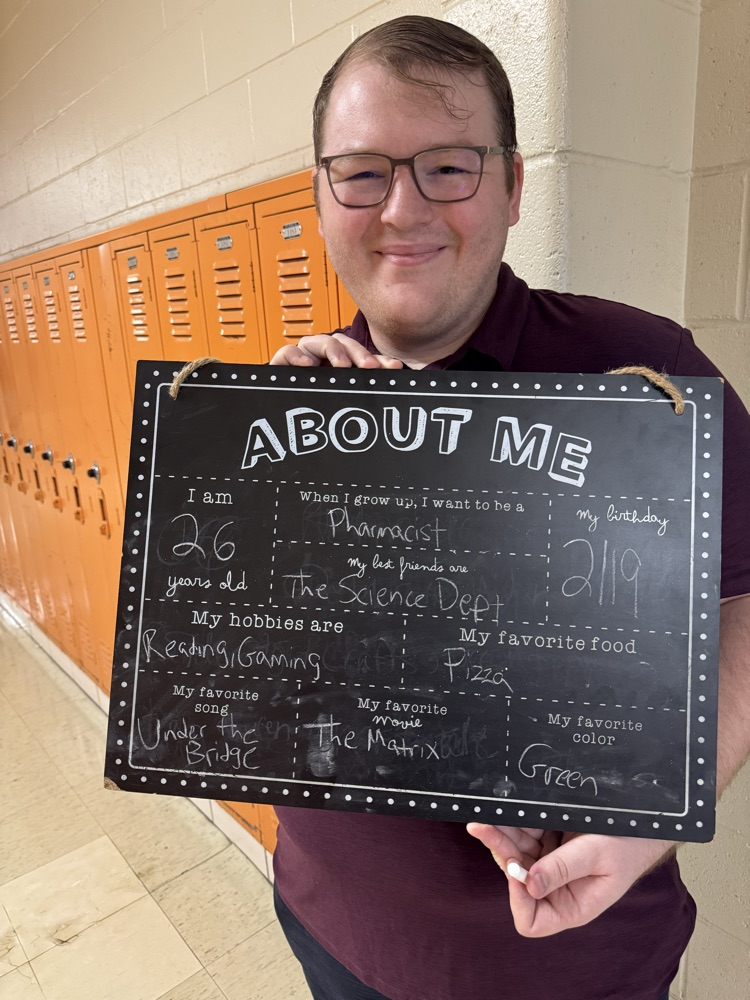 ABOUT ME
I am
26
years old
When I grow up, I want to be a
Pharmacist
My best friends are
The Science Dept
My birthday
2/19
My hobbies are
Reading, Gaming
My favorite food
Pizza
My favorite
song
Under the
Bridge
My favorite
movie
The Matrix
My favorite
color
Green